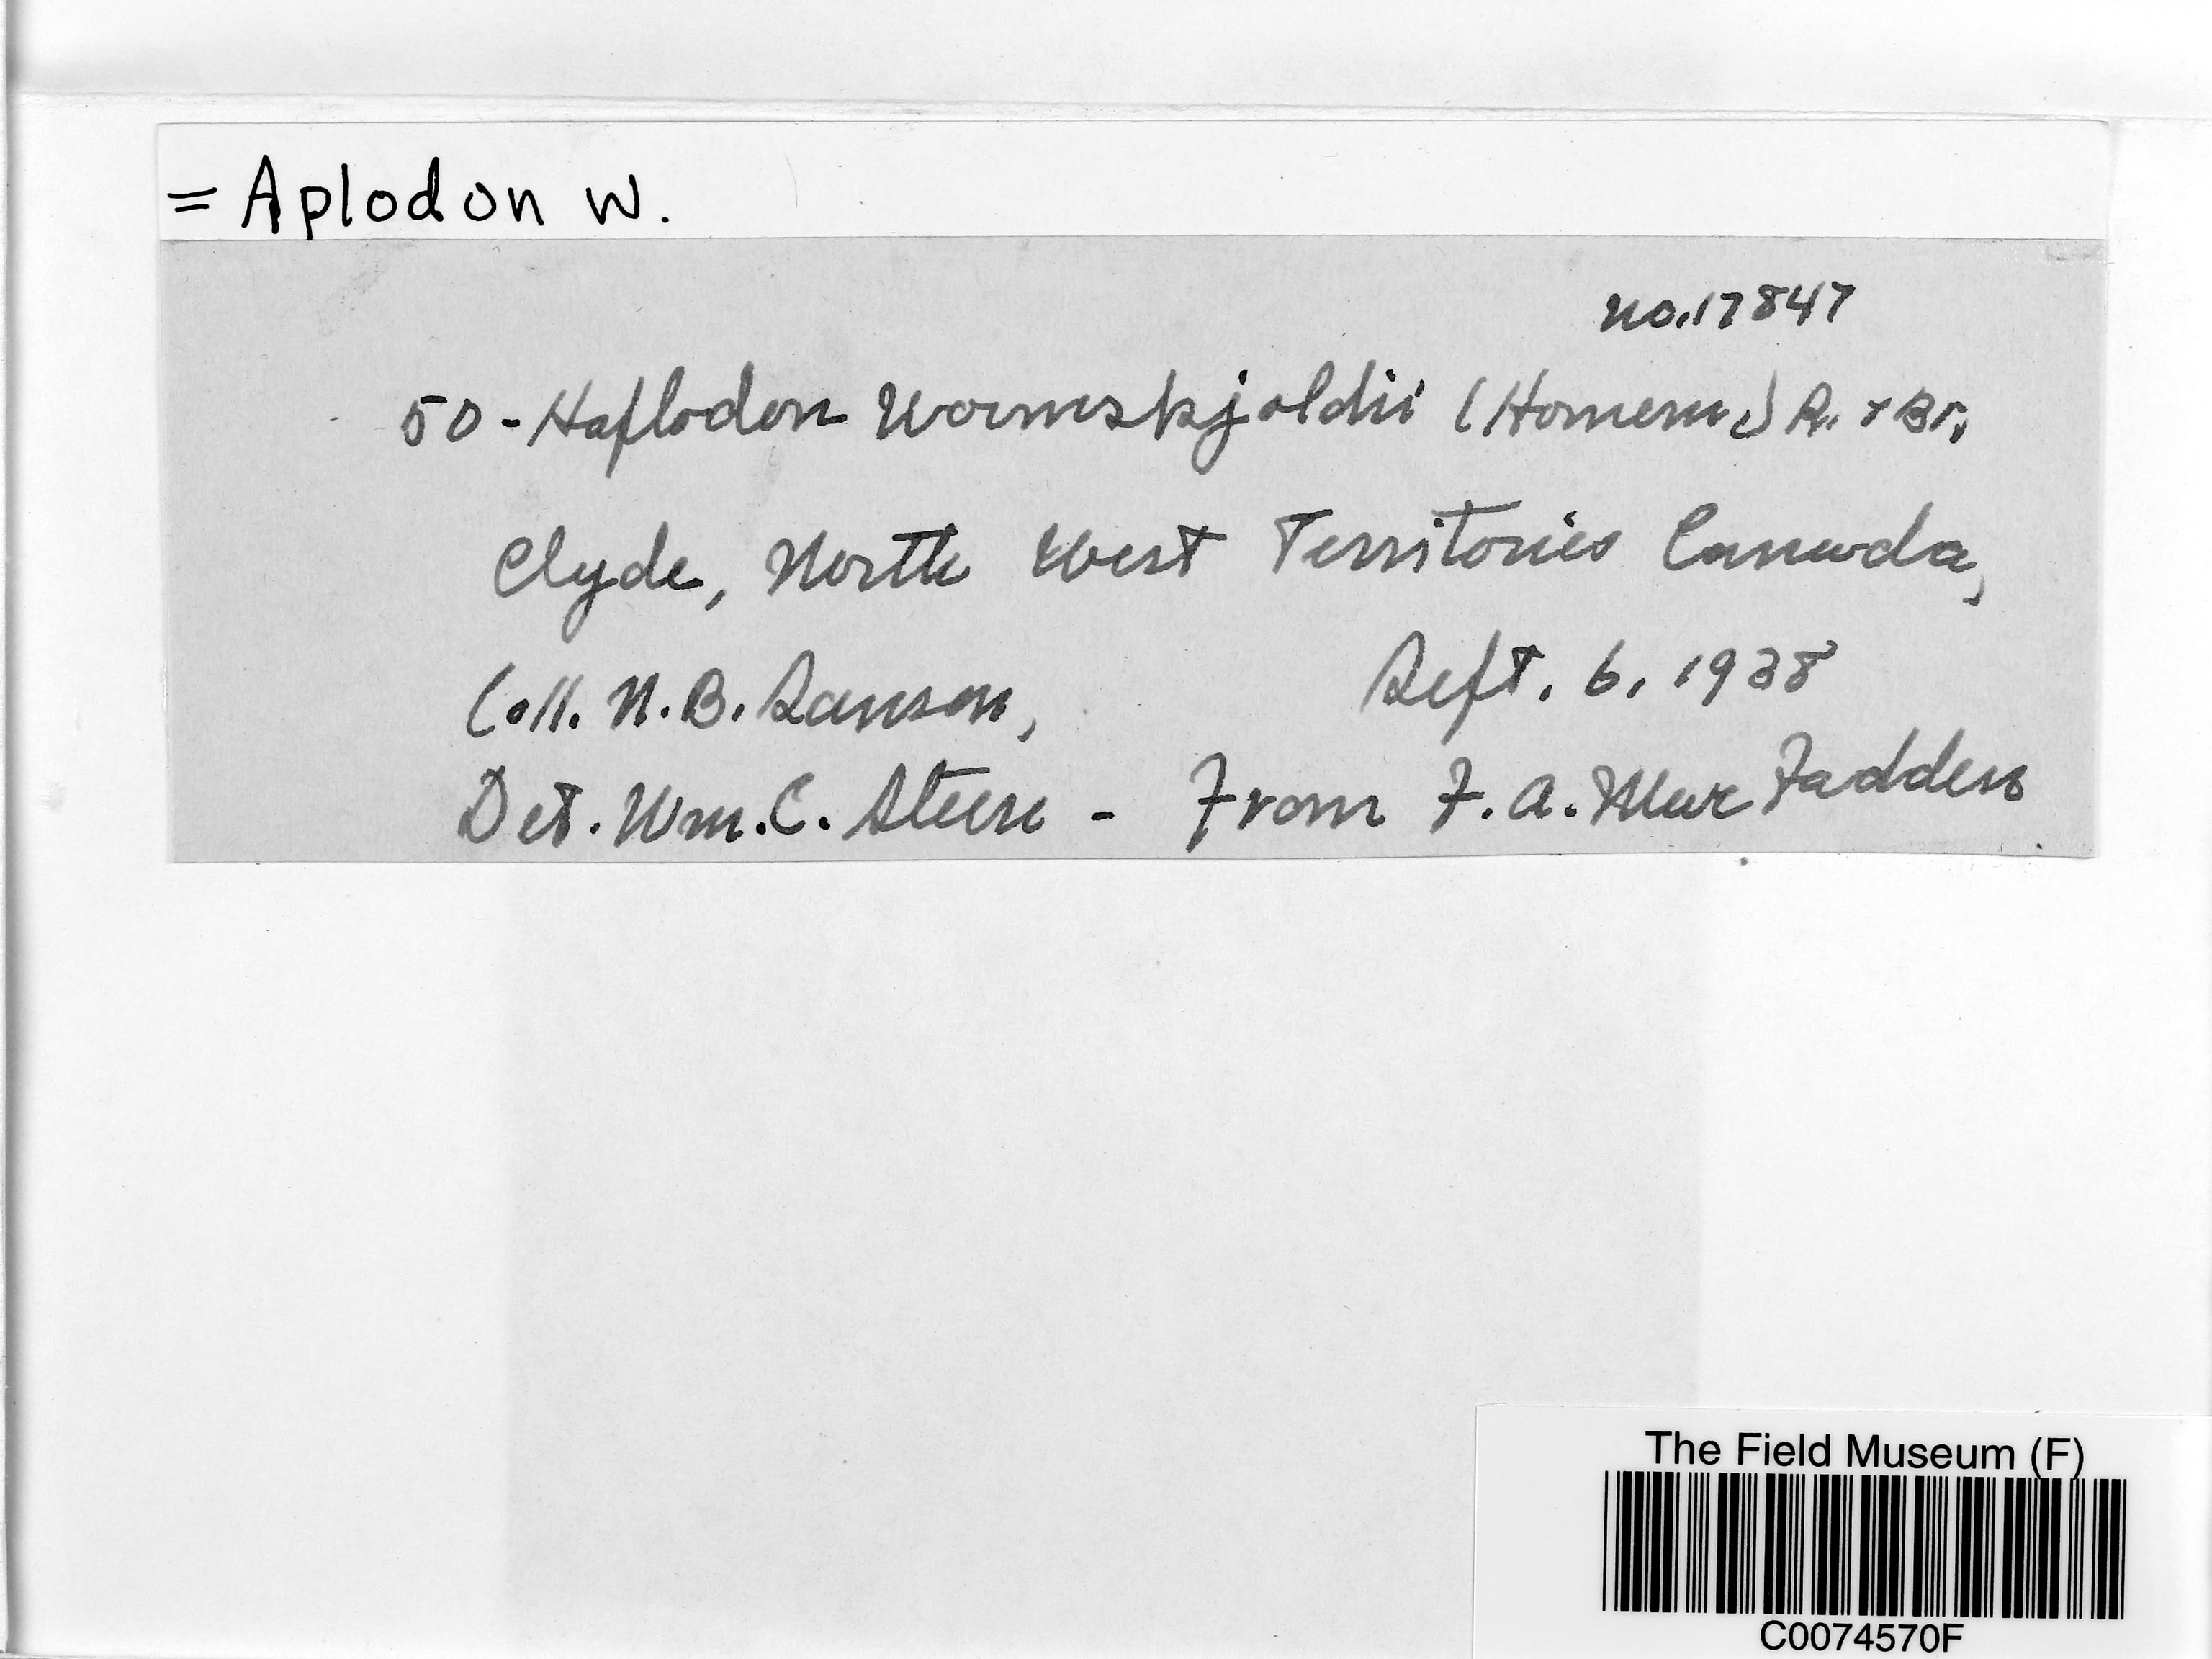 = Aplodon w.
No. 17847
50 - Haplodon Wormskjoldii (Hornem.) R. & Br.
Clyde, North West Territories Canada,
Coll. N. B. Sanson, Sept. 6, 1938
Det. Wm. C. Steere - From F. A. MacFadden
The Field Museum (F)
C0074570F